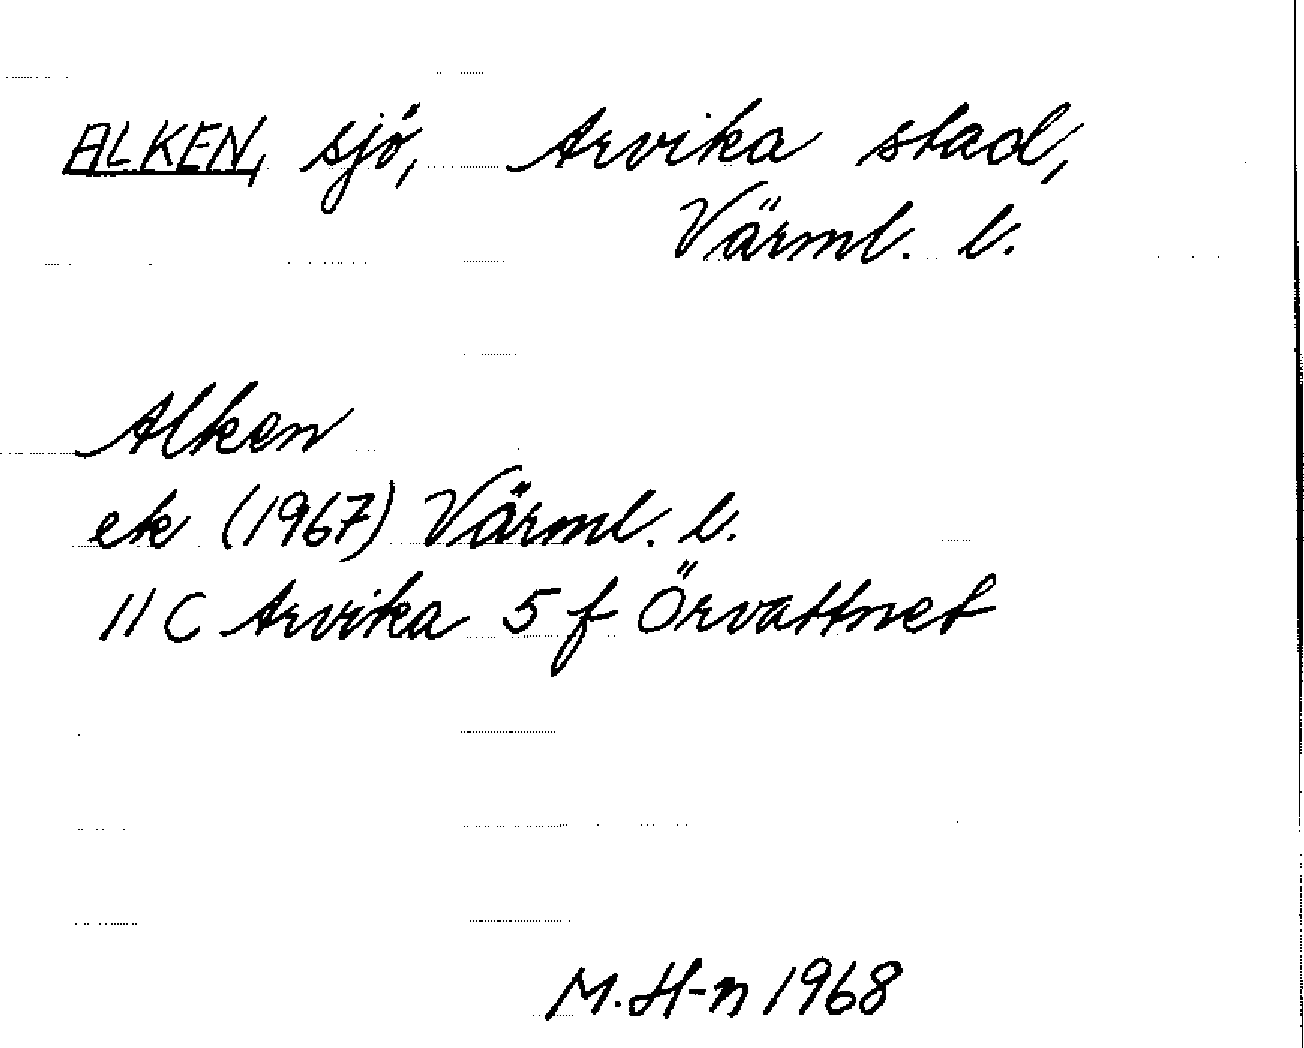 ALKEN, sjö, Arvika stad,
Värml. l.
Alken
ek (1967) Värml. l.
11 C Arvika 5 f Örvattnet
M. H-n 1968